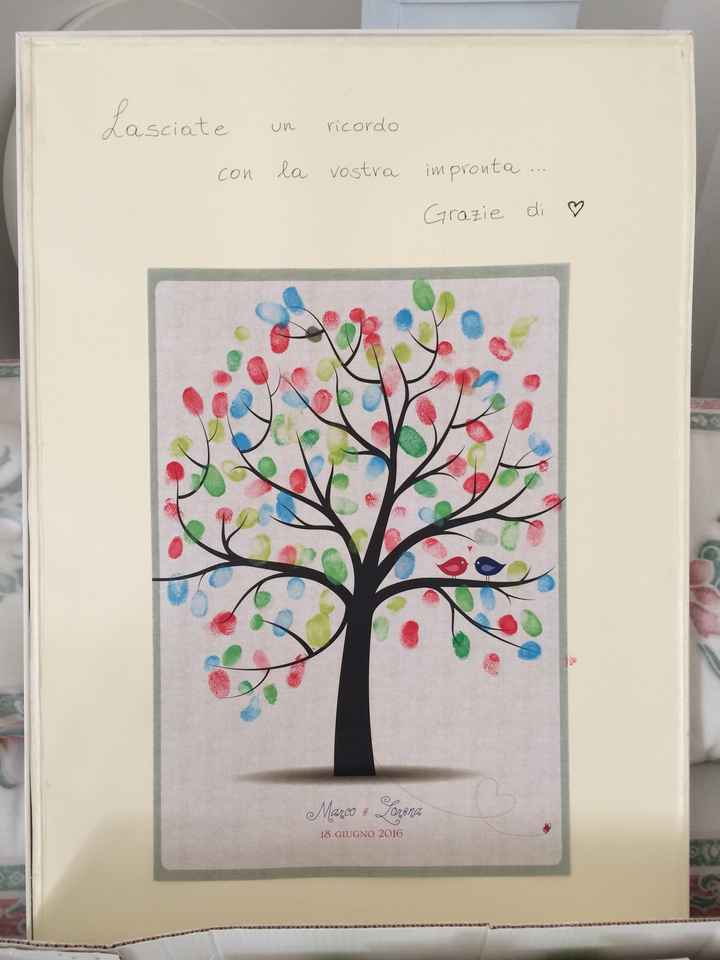 Lasciate un ricordo
con la vostra impronta...
Grazie di ♡
Marco e Lorena
18 GIUGNO 2016